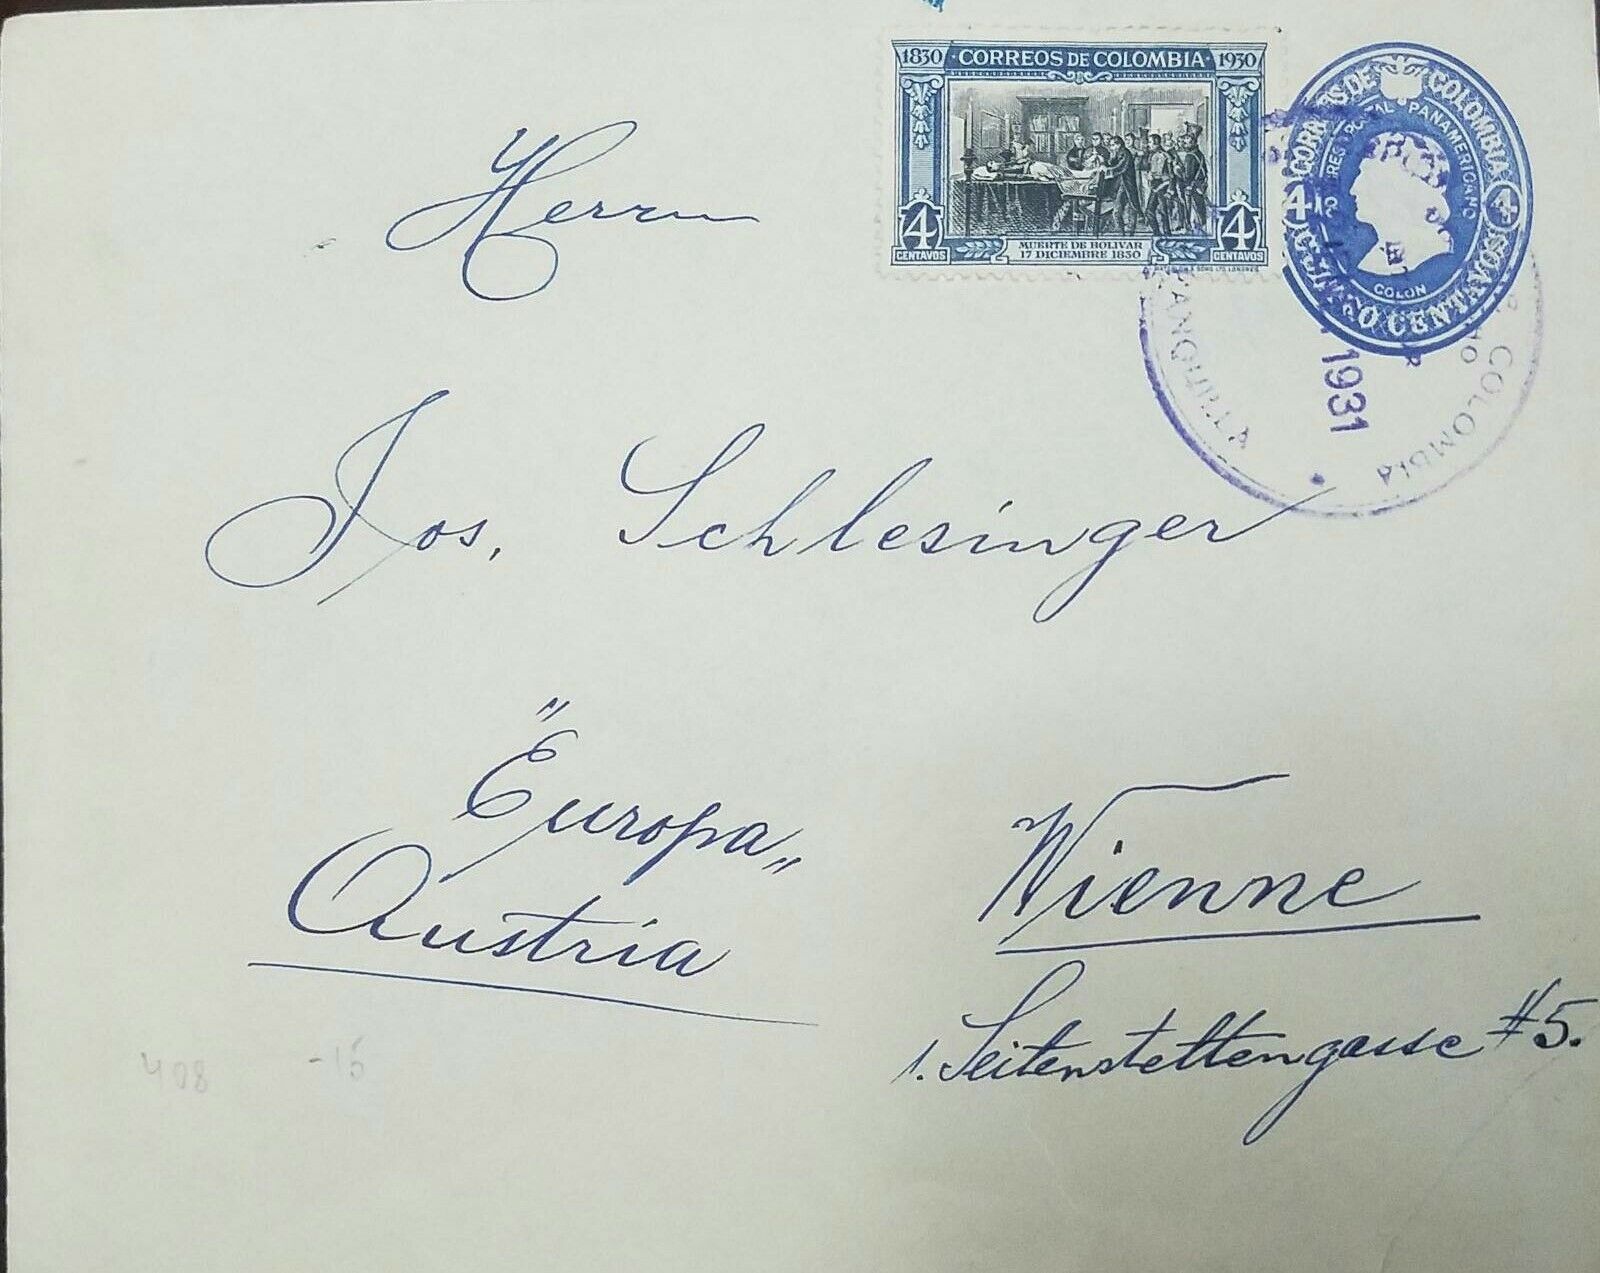 1830 CORREOS DE COLOMBIA 1930
4 CENTAVOS
MUERTE DE BOLIVAR
17 DICIEMBRE 1830
4 CENTAVOS
CORREOS DE COLOMBIA
POSTAL PANAMERICANO
4 4
COLON
CUATRO CENTAVOS
1931
COLOMBIA
Herrn
Jos. Schlesinger
"Europa"
Austria
Wienne
1. Seitenstettengasse #5.
408 -15